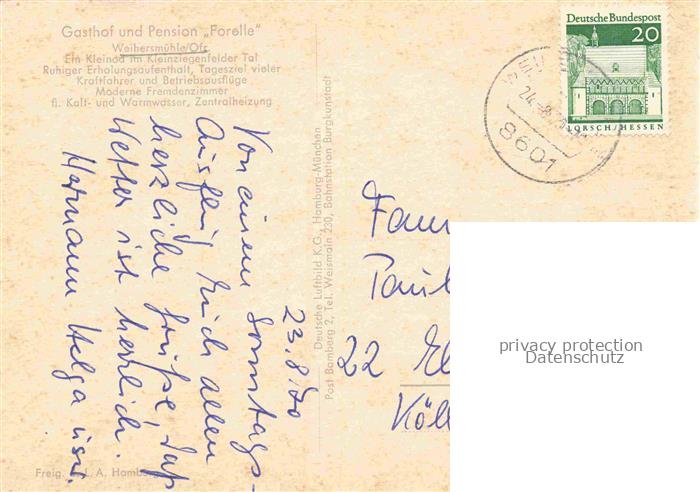 Gasthof und Pension „Forelle"
Weihersmühle/Ofr.
Ein Kleinod im Kleinziegenfelder Tal
Ruhiger Erholungsaufenthalt, Tagesziel vieler
Kraftfahrer und Betriebsausflüge
Moderne Fremdenzimmer
fl. Kalt- und Warmwasser, Zentralheizung
23.8.70
Von einem Sonntags-
Ausflug Euch allen
herzliche Grüße, das
Wetter ist herrlich.
Hermann Helga
Deutsche Luftbild K.G., Hamburg-München
Post Bamberg 2, Tel. Weismain 230, Bahnstation Burgkunstadt
Freig. L. A. Hamburg
Deutsche Bundespost
20
LORSCH/HESSEN
24.-8.
8601
Fam
Paul
22 El
Köl
privacy protection
Datenschutz